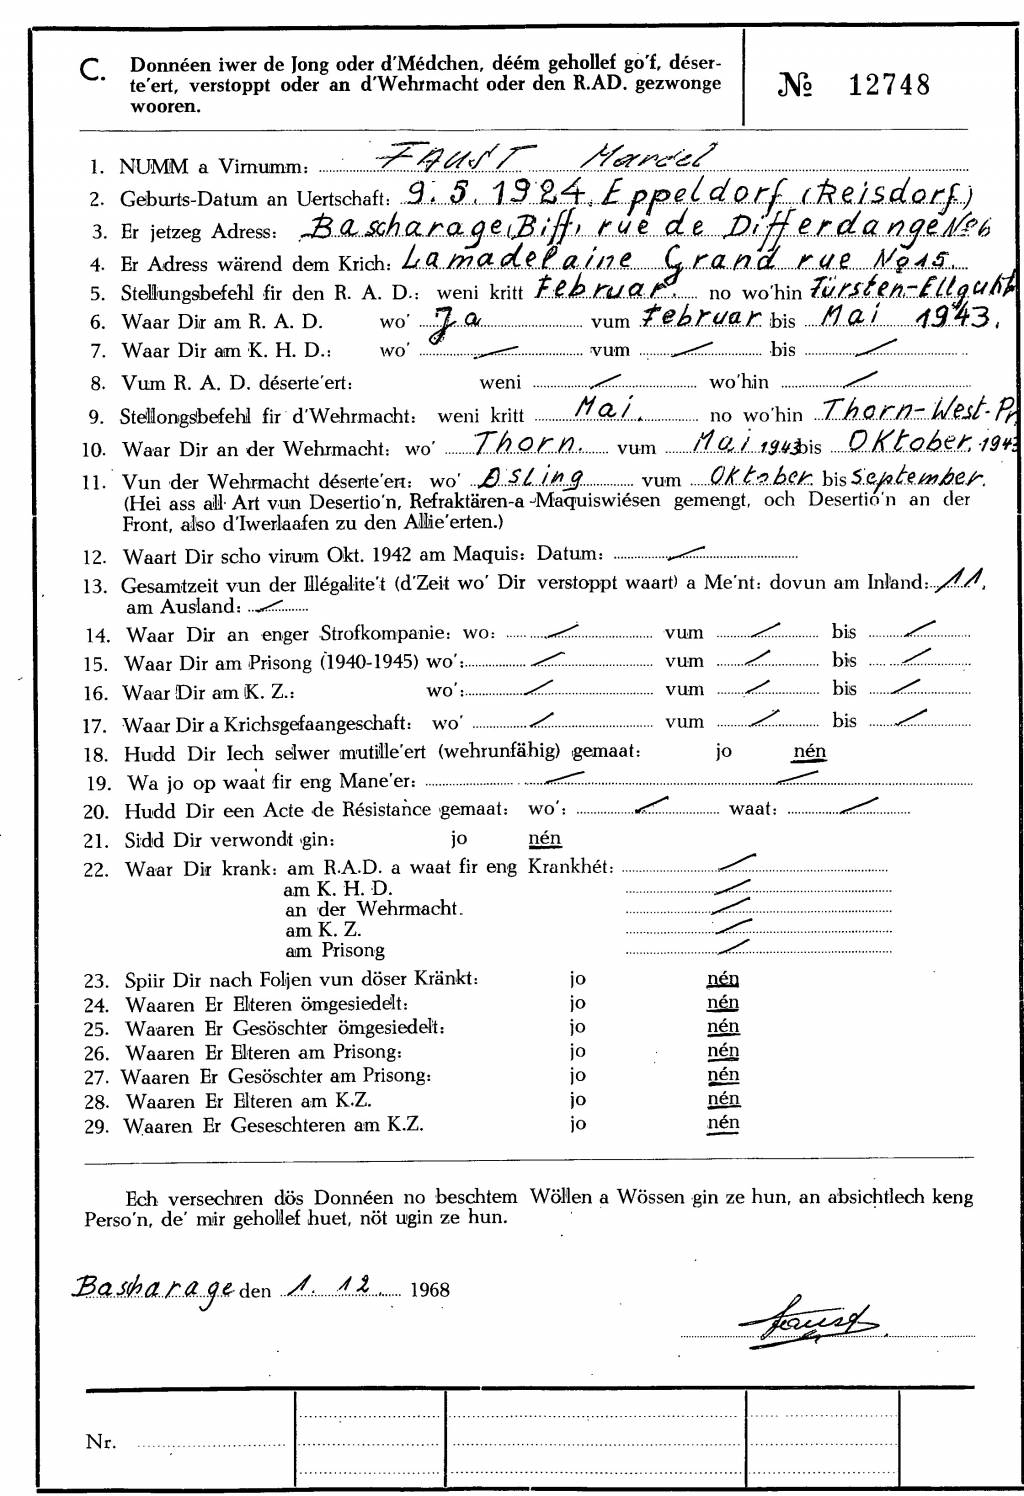 C. Donnéen iwer de Jong oder d'Médchen, déém gehollef go'f, déser-
te'ert, verstoppt oder an d'Wehrmacht oder den R.AD. gezwonge
wooren.
№ 12748
1. NUMM a Virnumm: FAUST Marcel
2. Geburts-Datum an Uertschaft: 9. 5. 1924. Eppeldorf (Reisdorf)
3. Er jetzeg Adress: Bascharage, Biff, rue de Differdange No 6
4. Er Adress wärend dem Krich: Lamadelaine Grand rue No 15.
5. Stellungsbefehl fir den R. A. D.: weni kritt Februar. no wo'hin Fürsten-Ellguth
6. Waar Dir am R. A. D. wo' Ja vum Februar bis Mai 1943.
7. Waar Dir am K. H. D.: wo' / vum / bis /
8. Vum R. A. D. déserte'ert: weni / wo'hin /
9. Stellongsbefehl fir d'Wehrmacht: weni kritt Mai. no wo'hin Thorn-West-Pr
10. Waar Dir an der Wehrmacht: wo' Thorn. vum Mai 1943 bis Oktober. 1943
11. Vun der Wehrmacht déserte'ert: wo' Osling vum Oktober bis September.
(Hei ass all Art vun Desertio'n, Refraktären-a -Maquiswiésen gemengt, och Desertio'n an der
Front, also d'Iwerlaafen zu den Allie'erten.)
12. Waart Dir scho virum Okt. 1942 am Maquis: Datum: /
13. Gesamtzeit vun der Illégalite't (d'Zeit wo' Dir verstoppt waart) a Me'nt: dovun am Inland: 11.
am Ausland: /
14. Waar Dir an enger Strofkompanie: wo: / vum / bis /
15. Waar Dir am Prisong (1940-1945) wo': / vum / bis /
16. Waar Dir am K. Z.: wo': / vum / bis /
17. Waar Dir a Krichsgefaangeschaft: wo' / vum / bis /
18. Hudd Dir Iech selwer mutille'ert (wehrunfähig) gemaat: jo nén
19. Wa jo op waat fir eng Mane'er: / /
20. Hudd Dir een Acte de Résistance gemaat: wo': / waat: /
21. Sidd Dir verwondt gin: jo nén
22. Waar Dir krank: am R.A.D. a waat fir eng Krankhét: /
am K. H. D. /
an der Wehrmacht. /
am K. Z. /
am Prisong /
23. Spiir Dir nach Foljen vun döser Kränkt: jo nén
24. Waaren Er Elteren ömgesiedelt: jo nén
25. Waaren Er Gesöschter ömgesiedelt: jo nén
26. Waaren Er Elteren am Prisong: jo nén
27. Waaren Er Gesöschter am Prisong: jo nén
28. Waaren Er Elteren am K.Z. jo nén
29. Waaren Er Geseschteren am K.Z. jo nén
Ech versechren dös Donnéen no beschtem Wöllen a Wössen gin ze hun, an absichtlech keng
Perso'n, de' mir gehollef huet, nöt ugin ze hun.
Bascharage den 1. 12. 1968
Faust
Nr.